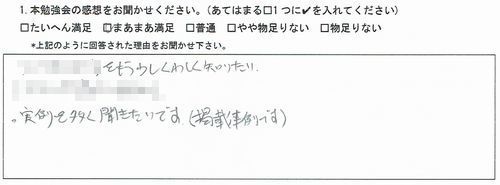 1. 本勉強会の感想をお聞かせください。(あてはまる□1つに✔を入れてください)
□たいへん満足 ☑まあまあ満足 □普通 □やや物足りない □物足りない
*上記のように回答された理由をお聞かせ下さい。
をもう少しくわしく知りたい.
。実例を多く聞きたいです.(掲載事例です)